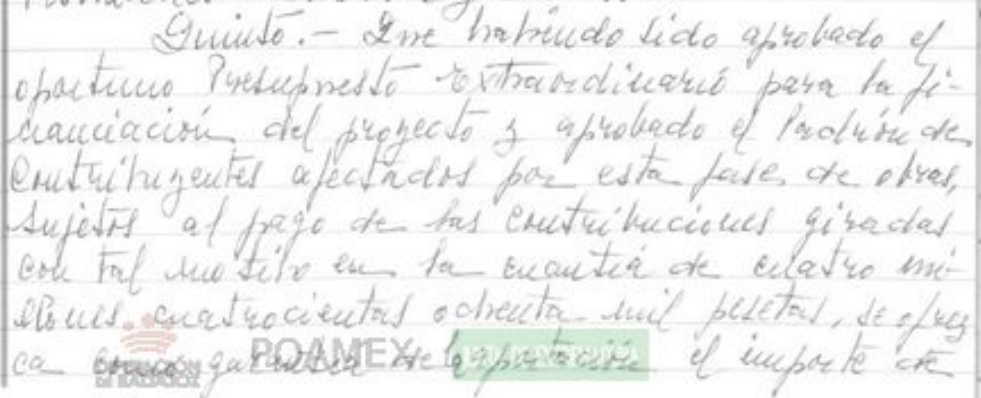 Quinto.- Que habiendo sido aprobado el
oportuno Presupuesto Extraordinario para la fi-
nanciación del proyecto y aprobado el Padrón de
Contribuyentes afectados por esta fase de obras,
sujetos al pago de las contribuciones giradas
con tal motivo en la cuantía de cuatro mi-
llones cuatrocientas ochenta mil pesetas, se ofrez
ca como garantía de la aportación el importe de
POAMEX